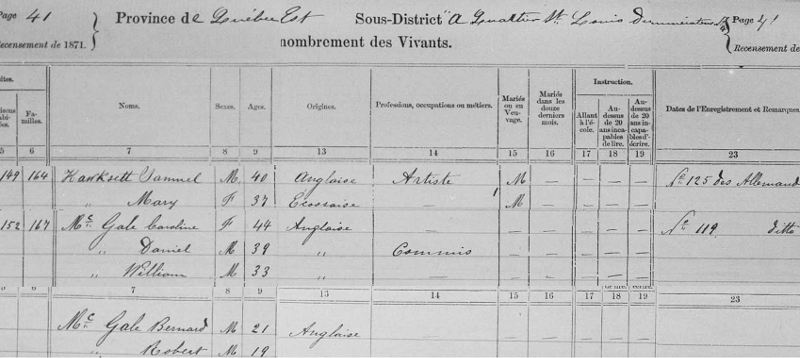 Page 41 Province de Québec Est Sous-District "A Quartier St. Louis Page 41
Recensement de 1871. nombrement des Vivants. Recensement de
Noms. Sexes. Ages. Origines. Professions, occupations ou métiers. Mariés ou en Veuvage. Mariés dans les douze derniers mois. Instruction. Allant à l'école. Au-dessus de 20 ans incapables de lire. Au-dessus de 20 ans incapables d'écrire. Dates de l'Enregistrement et Remarques
5 6 7 8 9 13 14 15 16 17 18 19 23
149 164 Hawksett Samuel M. 40 Anglaise Artiste M — — — — No. 125 des Allemand
" Mary F 37 Ecossaise — M — — — —
152 167 Mc. Gale Caroline F 44 Anglaise — — — — — — No. 119 ditto
" Daniel M 39 " Commis — — — — —
" William M 33 " — — — — — —
7 8 9 13 14 15 16 17 18 19 23
Mc. Gale Bernard M 21 Anglaise
" Robert M 19